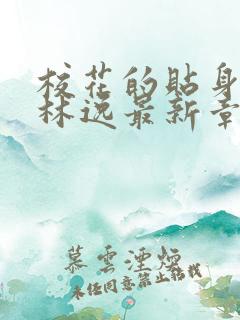 校花的贴身
林逸最新章
慕雲湮煙
未经同意禁止转载